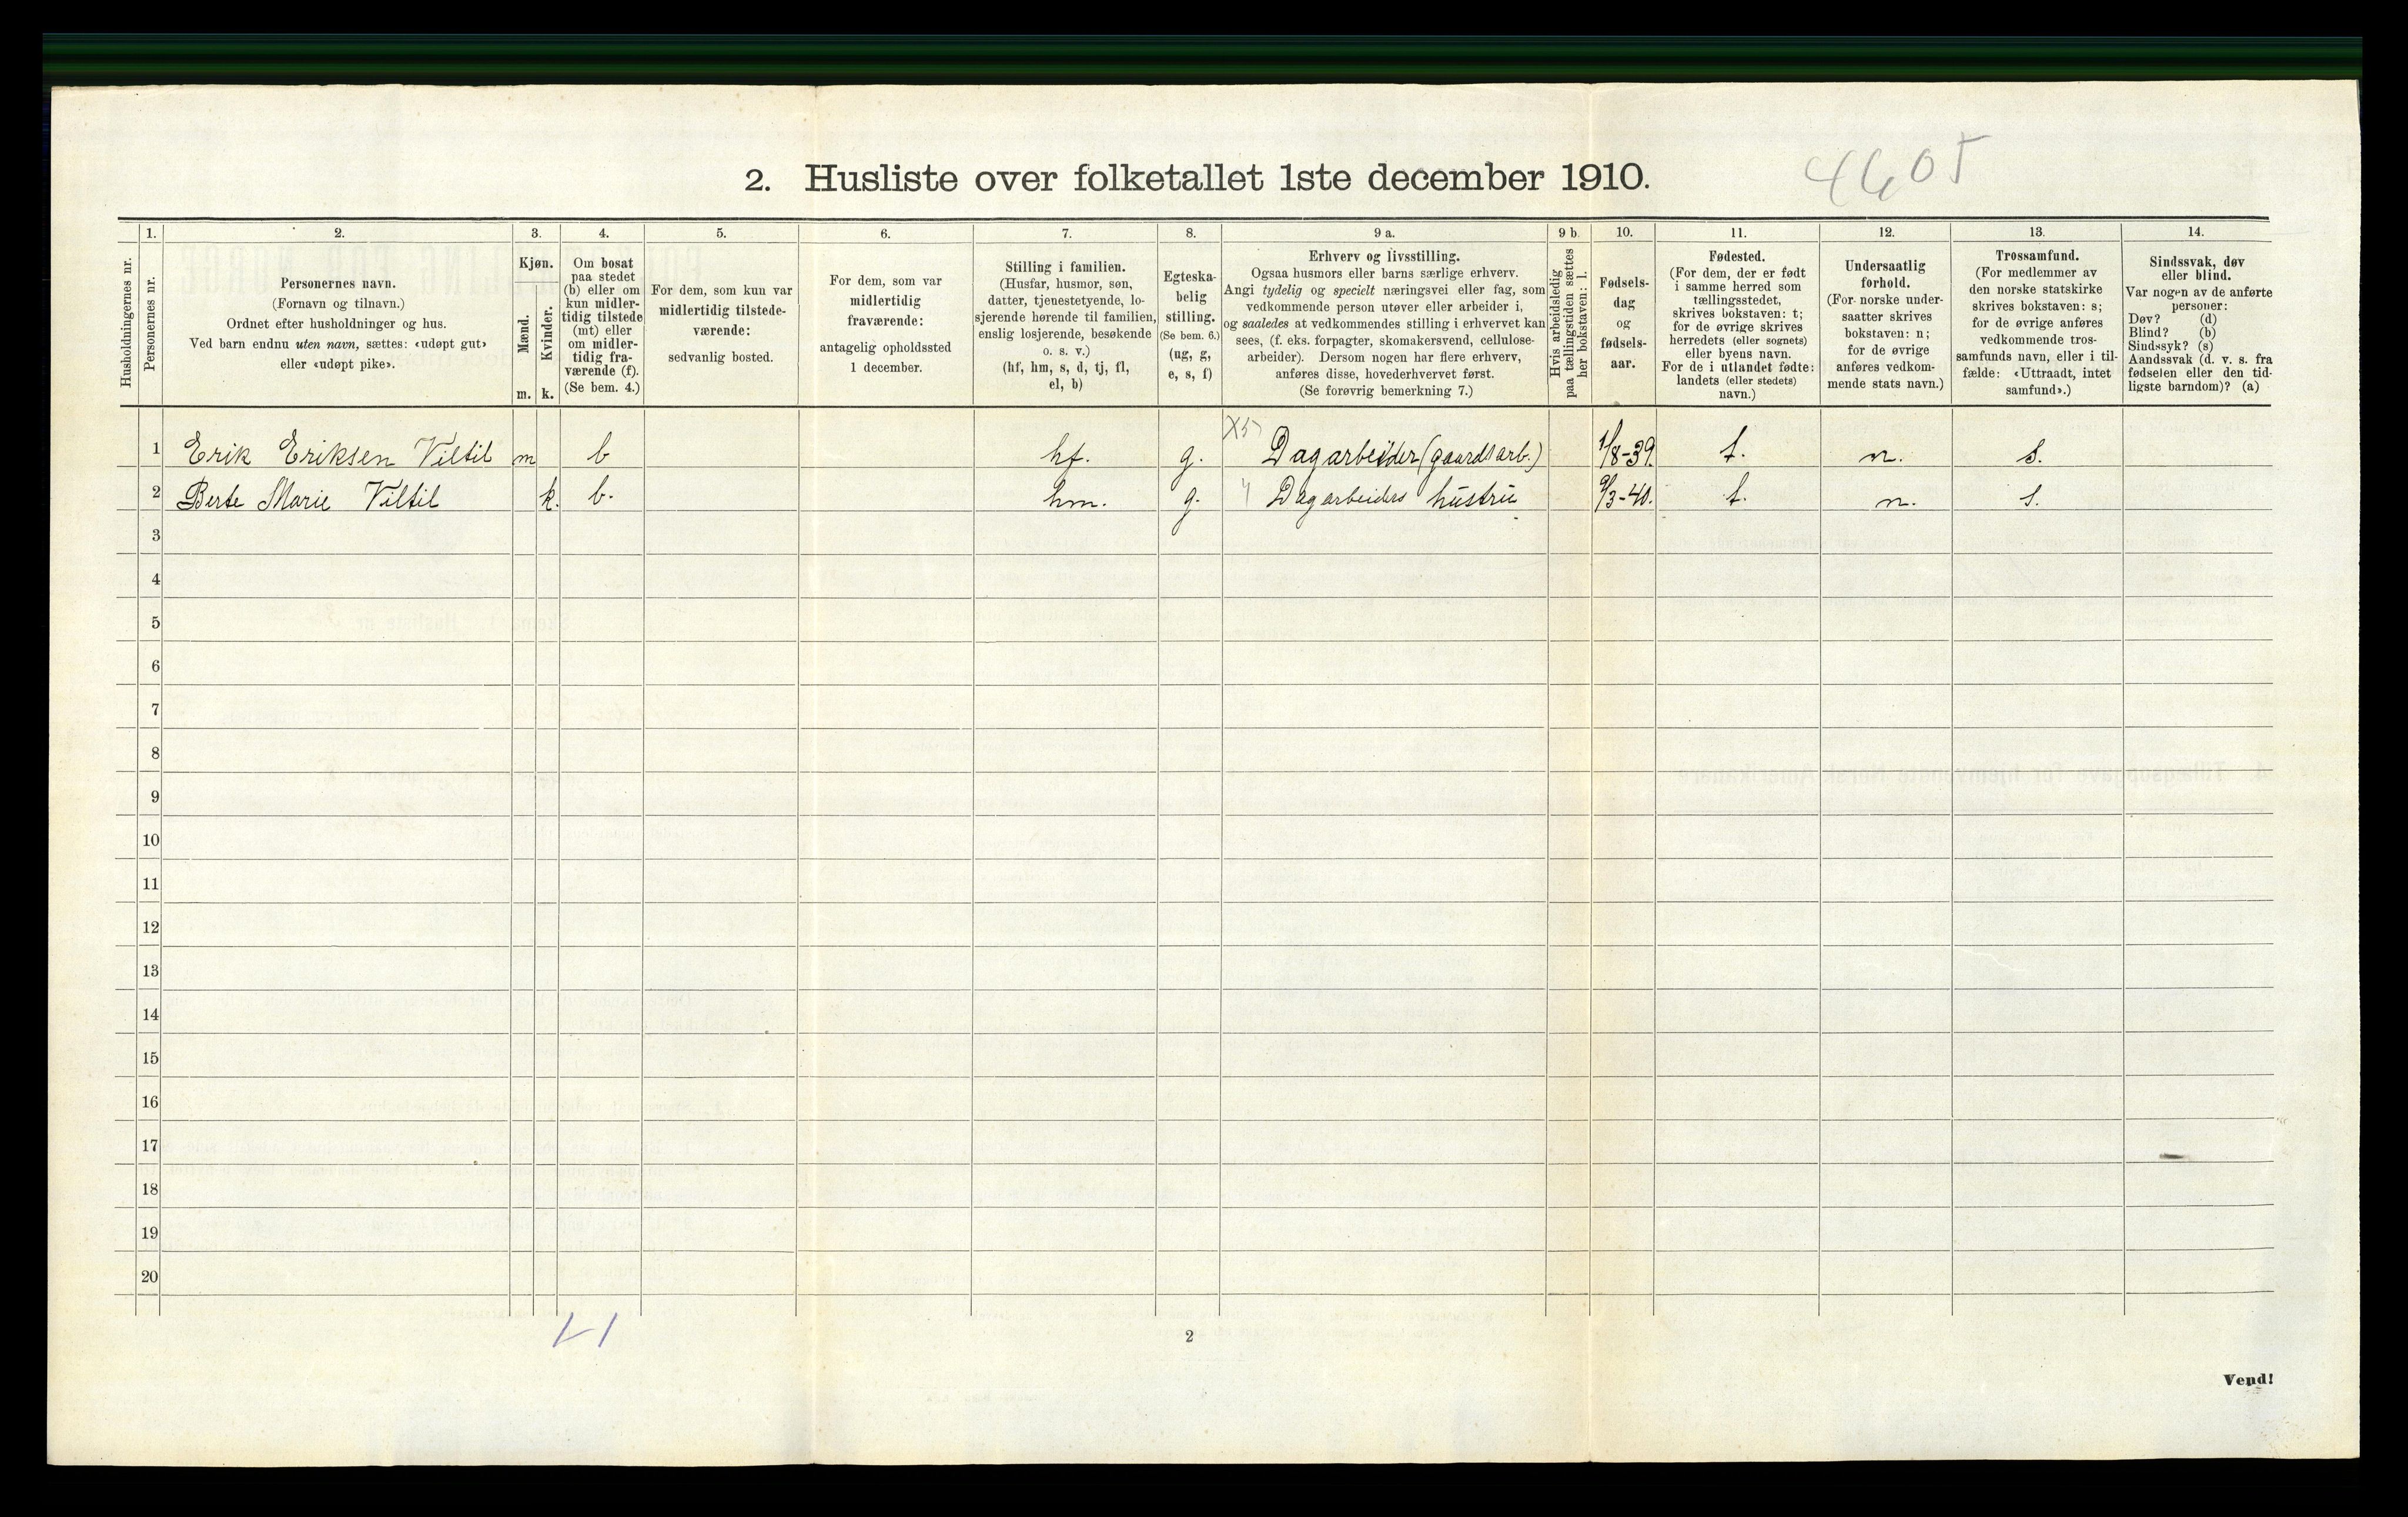 2. Husliste over folketallet 1ste december 1910.
4605
1. 2. 3. 4. 5. 6. 7. 8. 9 a. 9 b. 10. 11. 12. 13. 14.
Husholdningernes nr.
Personernes nr.
Personernes navn.
(Fornavn og tilnavn.)
Ordnet efter husholdninger og hus.
Ved barn endnu uten navn, sættes: «udøpt gut»
eller «udøpt pike».
Kjøn.
Mænd.
Kvinder.
m. k.
Om bosat
paa stedet
(b) eller om
kun midler-
tidig tilstede
(mt) eller
om midler-
tidig fra-
værende (f).
(Se bem. 4.)
For dem, som kun var
midlertidig tilstede-
værende:
sedvanlig bosted.
For dem, som var
midlertidig
fraværende:
antagelig opholdssted
1 december.
Stilling i familien.
(Husfar, husmor, søn,
datter, tjenestetyende, lo-
sjerende hørende til familien,
enslig losjerende, besøkende
o. s. v.)
(hf, hm, s, d, tj, fl,
el, b)
Egteska-
belig
stilling.
(Se bem. 6.)
(ug, g,
e, s, f)
Erhverv og livsstilling.
Ogsaa husmors eller barns særlige erhverv.
Angi tydelig og specielt næringsvei eller fag, som
vedkommende person utøver eller arbeider i,
og saaledes at vedkommendes stilling i erhvervet kan
sees, (f. eks. forpagter, skomakersvend, cellulose-
arbeider). Dersom nogen har flere erhverv,
anføres disse, hovederhvervet først.
(Se forøvrig bemerkning 7.)
Hvis arbeidsledig
paa tællingstiden sættes
her bokstaven: l.
Fødsels-
dag
og
fødsels-
aar.
Fødested.
(For dem, der er født
i samme herred som
tællingsstedet,
skrives bokstaven: t;
for de øvrige skrives
herredets (eller sognets)
eller byens navn.
For de i utlandet fødte:
landets (eller stedets)
navn.)
Undersaatlig
forhold.
(For norske under-
saatter skrives
bokstaven: n;
for de øvrige
anføres vedkom-
mende stats navn.)
Trossamfund.
(For medlemmer av
den norske statskirke
skrives bokstaven: s;
for de øvrige anføres
vedkommende tros-
samfunds navn, eller i til-
fælde: «Uttraadt, intet
samfund».)
Sindssvak, døv
eller blind.
Var nogen av de anførte
personer:
Døv? (d)
Blind? (b)
Sindssyk? (s)
Aandssvak (d. v. s. fra
fødselen eller den tid-
ligste barndom)? (a)
1 Erik Eriksen Viltil m b hf. g. Dagarbeider (gaardsarb.) 1/8-39. t. n. s.
2 Berte Marie Viltil k. b. hm. g. Dagarbeiders hustru 9/3-40. t. n. s.
3
4
5
6
7
8
9
10
11
12
13
14
15
16
17
18
19
20
2
Vend!